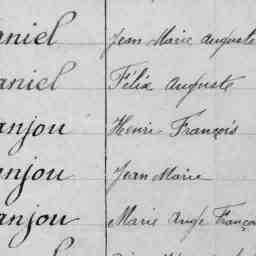 aniel Jean Marie Auguste
aniel Félix Auguste
anjou Henri François
anjou Jean Marie
anjou Marie Ange Franço